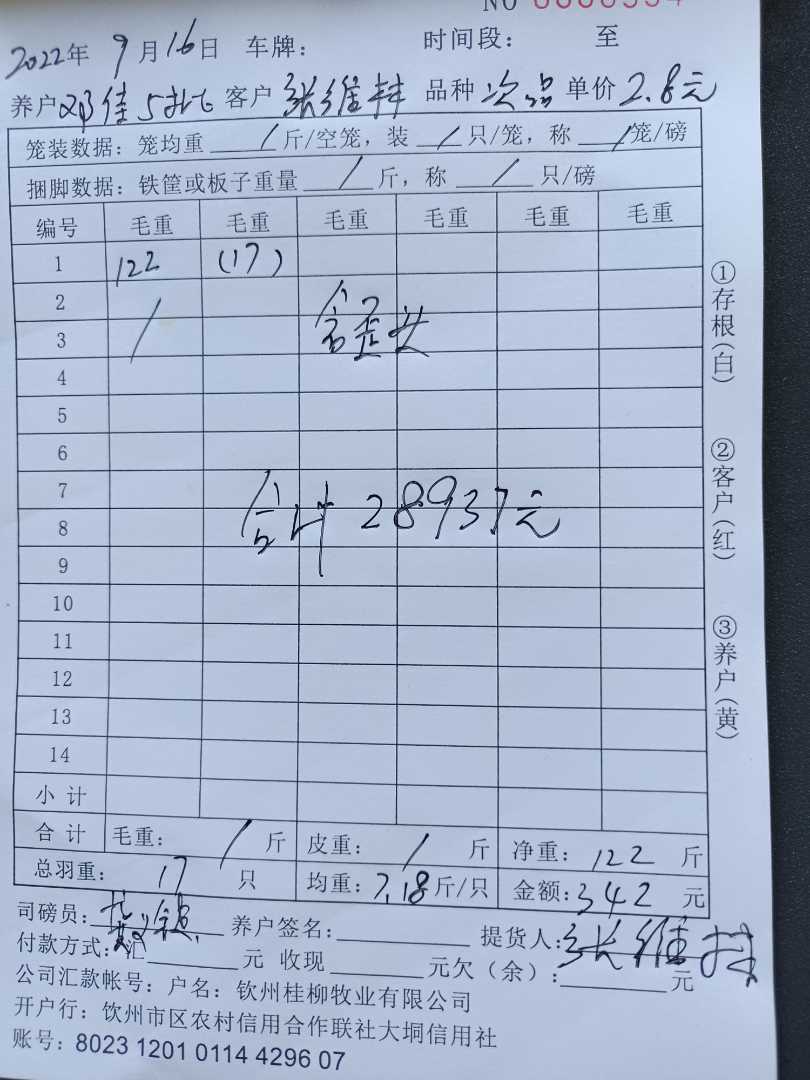 2022年 9月16日 车牌： 时间段： 至
养户 邓佳 客户 张维林 品种 次品 单价 2.8元
笼装数据：笼均重 / 斤/空笼，装 / 只/笼，称 / 笼/磅
捆脚数据：铁筐或板子重量 / 斤，称 / 只/磅
编号 毛重 毛重 毛重 毛重 毛重 毛重
1 122 (17)
2
3 /
4
5
6
7
合计 28937元
8
9
10
11
12
13
14
小计
合计 毛重： / 斤 皮重： / 斤 净重：122 斤
总羽重： 17 只 均重：7.18斤/只 金额：342 元
司磅员： 养户签名： 提货人：张维林
付款方式：汇 元 收现 元欠（余）： 元
公司汇款帐号：户名：钦州桂柳牧业有限公司
开户行：钦州市区农村信用合作联社大垌信用社
账号：8023 1201 0114 4296 07
①存根（白）
②客户（红）
③养户（黄）